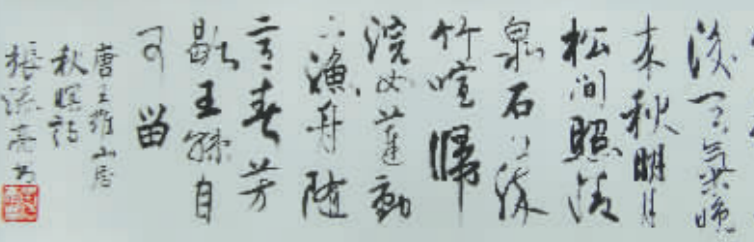 後天氣晚
来秋明月
松间照清
泉石上流
竹喧歸
浣女蓮動
下漁舟随
意春芳
歇王孫自
可留
唐王維山居
秋暝詩
張 亮书